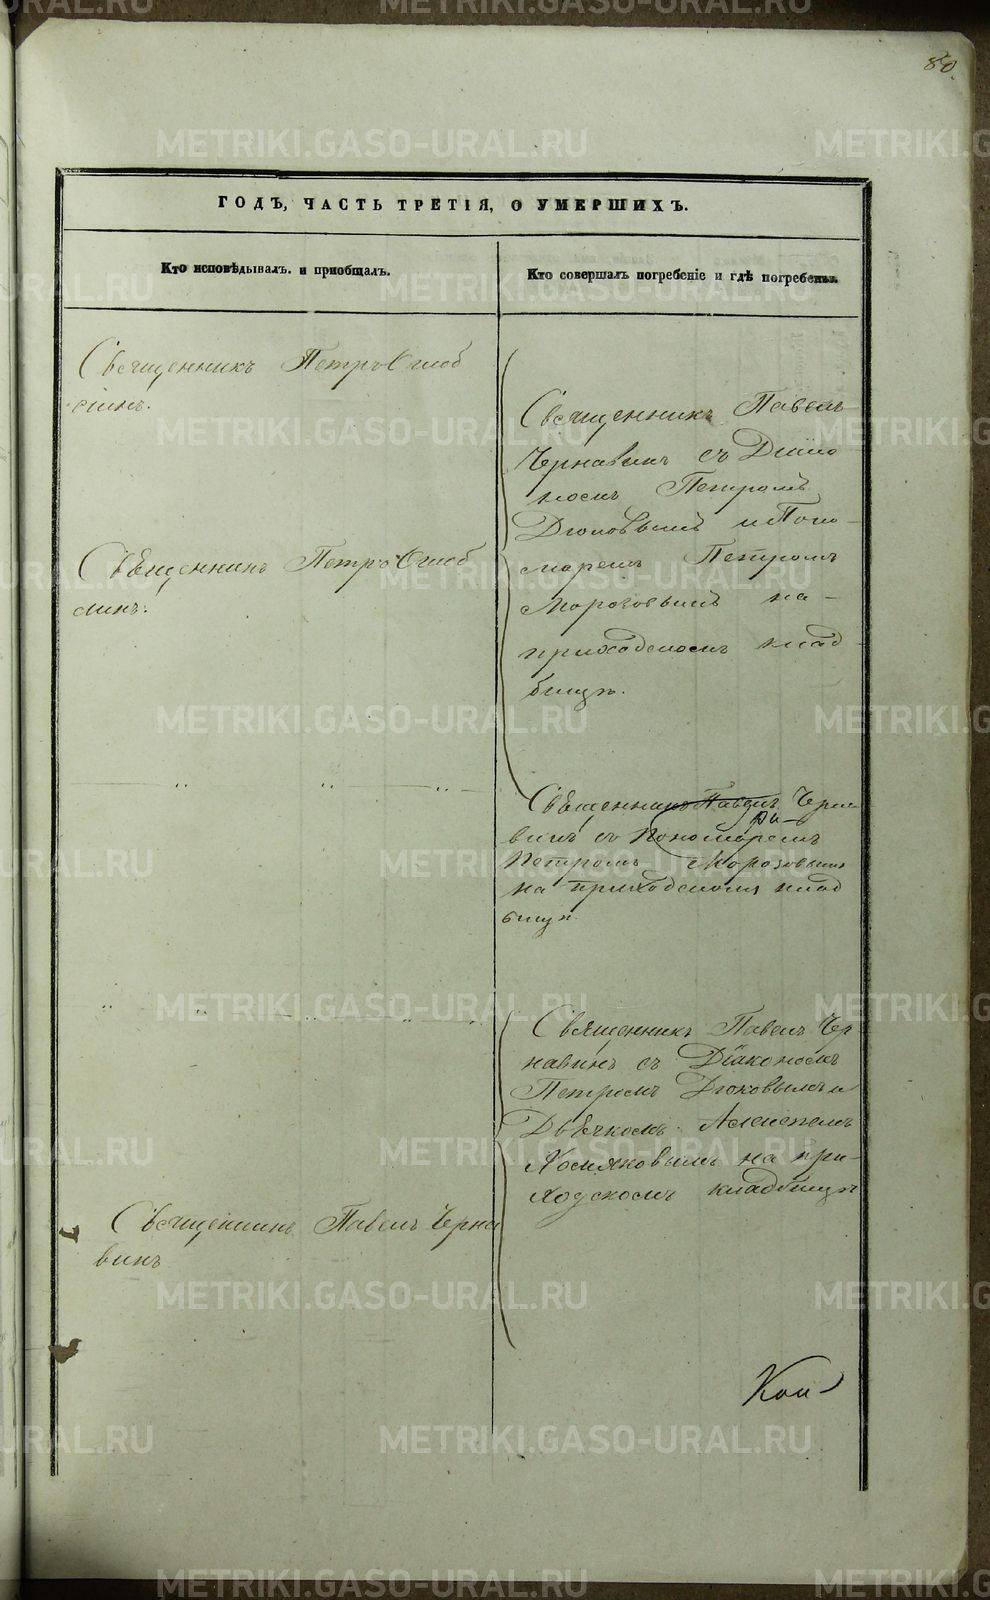 80.
ГОДЪ, ЧАСТЬ ТРЕТІЯ, О УМЕРШИХЪ.
Кто исповѣдывалъ и пріобщалъ.
Кто совершалъ погребеніе и гдѣ погребены.
Священникъ Петръ
Священникъ Павелъ
Чернавинъ съ Діако
номъ Петромъ
Дюковымъ и Поно-
маремъ Петромъ
Морозовымъ на-
приходскомъ клад-
бищѣ.
Свѣщенникъ Петръ
Свѣщенникъ Павелъ Черна
винъ съ Пономаремъ
Петромъ Морозовымъ
на приходскомъ клад
бищѣ.
Священникъ Павелъ Чер
навинъ съ Діакономъ
Петромъ Дюковымъ и
Дьѣчкомъ Алексѣемъ
Хомяковымъ на при-
ходскомъ кладбищѣ
Священникъ Павелъ Черна
винъ
METRIKI.GASO-URAL.RU